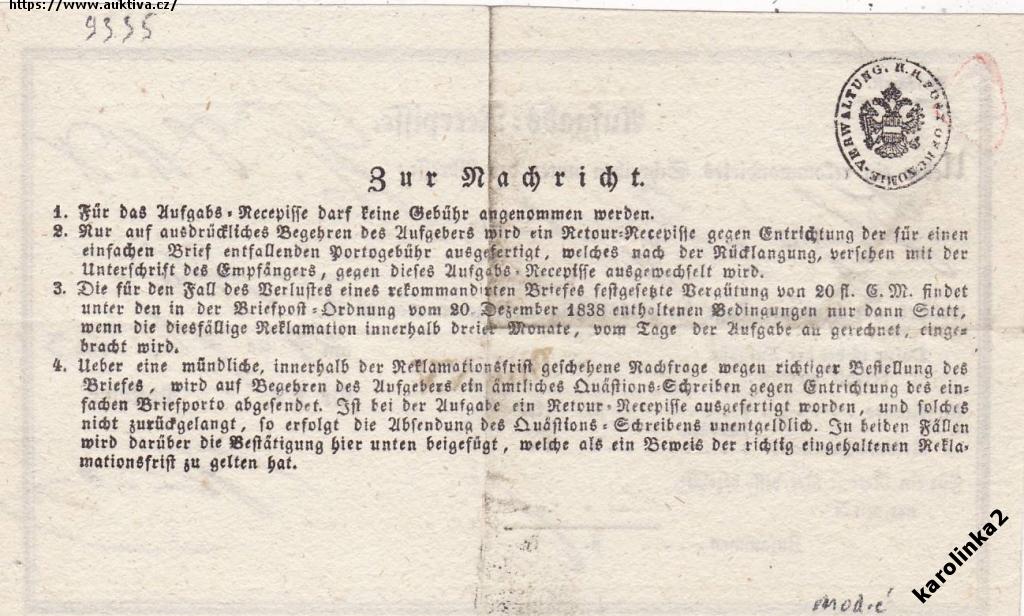 https://www.auktiva.cz/
9335
K. K. POST OEKONOMIE-VERWALTUNG.
Zur Nachricht.
1. Für das Aufgabs-Recepisse darf keine Gebühr angenommen werden.
2. Nur auf ausdrückliches Begehren des Aufgebers wird ein Retour-Recepisse gegen Entrichtung der für einen
einfachen Brief entfallenden Portogebühr ausgefertigt, welches nach der Rücklangung, versehen mit der
Unterschrift des Empfängers, gegen dieses Aufgabs-Recepisse ausgewechselt wird.
3. Die für den Fall des Verlustes eines rekommandirten Briefes festgesetzte Vergütung von 20 fl. C. M. findet
unter den in der Briefpost-Ordnung vom 20. Dezember 1838 enthaltenen Bedingungen nur dann Statt,
wenn die diesfällige Reklamation innerhalb dreier Monate, vom Tage der Aufgabe an gerechnet, einge-
bracht wird.
4. Ueber eine mündliche, innerhalb der Reklamationsfrist geschehene Nachfrage wegen richtiger Bestellung des
Briefes, wird auf Begehren des Aufgebers ein ämtliches Quästions-Schreiben gegen Entrichtung des ein-
fachen Briefporto abgesendet. Ist bei der Aufgabe ein Retour-Recepisse ausgefertigt worden, und solches
nicht zurückgelangt, so erfolgt die Absendung des Quästions-Schreibens unentgeldlich. In beiden Fällen
wird darüber die Bestätigung hier unten beigefügt, welche als ein Beweis der richtig eingehaltenen Rekla-
mationsfrist zu gelten hat.
modré
karolinka2